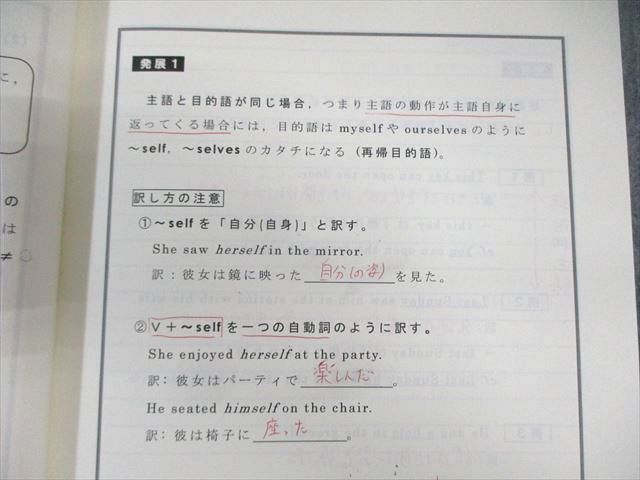 発展1
主語と目的語が同じ場合，つまり主語の動作が主語自身に
返ってくる場合には，目的語は myself や ourselves のように
～self，～selves のカタチになる (再帰目的語)。
訳し方の注意
①～self を「自分(自身)」と訳す。
She saw herself in the mirror.
訳：彼女は鏡に映った 自分(の姿) を見た。
② V＋～self を一つの自動詞のように訳す。
She enjoyed herself at the party.
訳：彼女はパーティで 楽しんだ 。
He seated himself on the chair.
訳：彼は椅子に 座った 。
に，
の
は
≠ ○